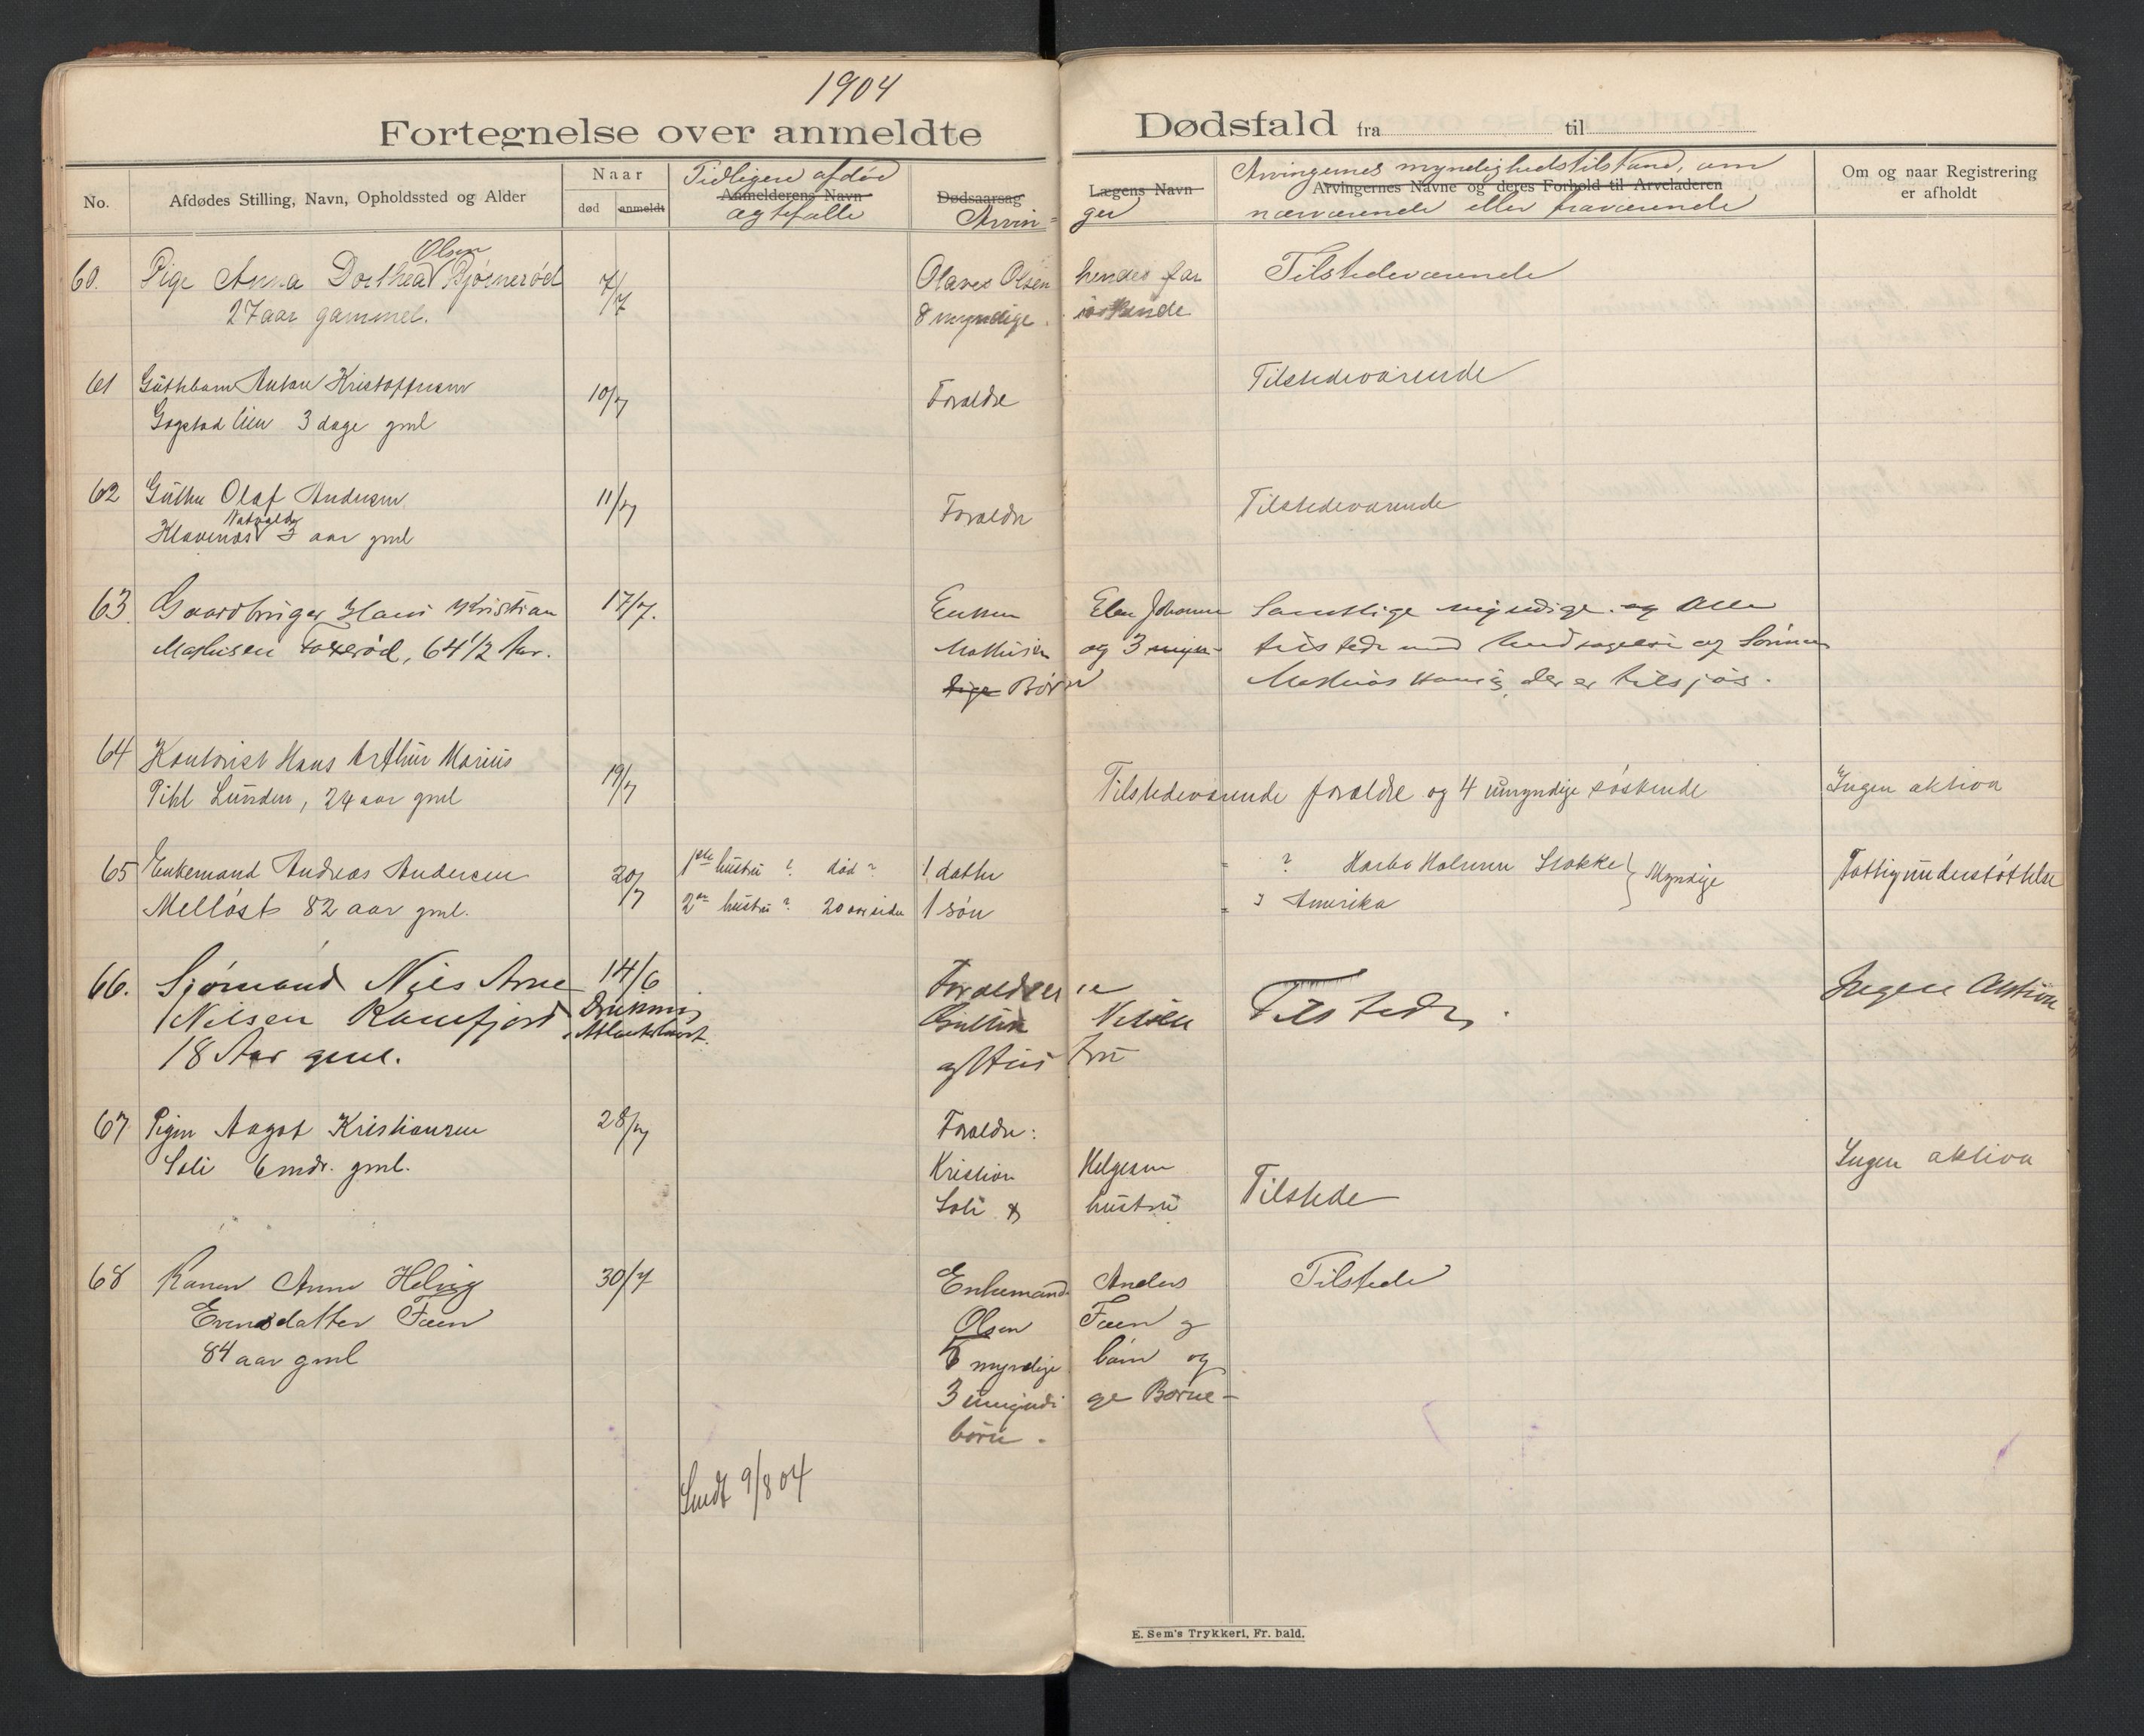 1904
Fortegnelse over anmeldte Dødsfald fra til
No.
Afdødes Stilling, Navn, Opholdssted og Alder
Naar
død anmeldt
Tidligere afdød
Anmelderens Navn
ægtefælle
Dødsaarsag
Lægens Navn
Arvinger
Arvingernes myndighedstilstand, om
Arvingernes Navne og deres Forhold til Arveladeren
nærværende eller fraværende
Om og naar Registrering
er afholdt
60. Pige Anna Dorthea Olsen Bjørnerød
27 aar gammel.
7/7
Olaves Olsen hendes far
8 myndige søskende
Tilstedeværende
61 Guttebarn Anton Kristoffersen
Gogstad lien 3 dage gml
10/7
Forældre
Tilstedeværende
62 Gutten Olaf Andersen
Klavenæs 3 aar gml
11/7
Forældre
Tilstedeværende
63. Gaardbruger Hans Kristian
Mathisen Foxerød, 64 1/2 Aar.
17/7.
Enken Elen Johanne
Mathisen og 3 myn-
dige Børn
Samtlige myndige og Alle
tilstede med Undtagelse af Sønnen
Mathias der er tilsjøs.
64 Kontorist Hans Arthur Marius
Pihl Lunden, 24 aar gml
19/7
Tilstedeværende forældre og 4 umyndige søskende
Ingen aktiva
65 Enkemand Andreas Andersen
Melløst 82 aar gml.
20/7
1ste hustru ? død ?
2en hustru ? 20 aar siden
1 datter
1 søn
? Holmen Stokke
? Amerika
Myndige
Fattigunderstøttelse
66. Sjømand Nils Arne
Nilsen Ranefjord
18 Aar gml.
14/6
Druknet
Atlanterhavet.
Forældrene
Nilsen
og Hustru
Tilstede.
Ingen Aktiva
67 Pigen Aagot Kristiansen
Soli 6 mdr. gml.
28/7
Forældre:
Kristian Helgesen
Soli & hustru
Tilstede
Ingen aktiva
68 Konen Anne Helvig
Evensdatter Fæen
84 aar gml
30/7
Enkemand Anders
Olsen Fæen og
6 myndige børn og
3 umyndige Børne-
børn.
Tilstede
Sendt 9/8 04
E. Sem's Trykkeri, Fr. hald.